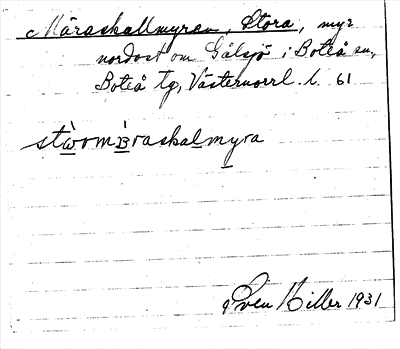 Märaskallmyran, Stora, myr
nordost om Gålsjö i Boteå sn,
Boteå tg, Västernorrl. l. 61
stòwomɜ̀raskalmyra
Sven Hiller 1931